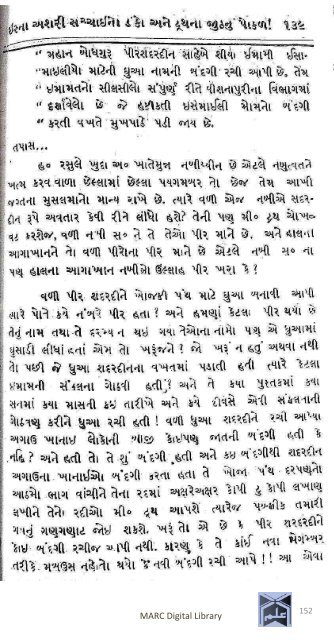 ઇરના અશરી સચ્ચાઇનો ડંકો અને દ્રથના જુઠનું પોકળ! ૧૩૯
"મહાન બોધગુરૂ પીરશદરદીન સાહેબે શીયા ઇમામી ઇસા-
"માઇલીયો માટેની દુઆ નામની બંદગી રચી આપી છે. તેમ
"ઇમામતનો સીલસીલો સંપુર્ણ રીતે વીશનાપુરીના વિભાગમાં
"દર્શાવેલો છે જે હકીકતી ઇસમાઈલી મોમનો બંદગી
"કરતી વખતે મુખપાઠે પઢી જાય છે.
તપાસ...
હ૦ રસુલે ખુદા અ૦ ખાતેમુન નબીય્યીન છે એટલે નબુવ્વતને
ખત્મ કરવા વાળા છેલ્લામાં છેલ્લા પયગમ્બર તો છેજ તેમ આખી
જગતના મુસલમાનો માન્ય રાખે છે. ત્યારે વળી એજ નબીએ સદર-
દીન રૂપે અવતાર કેવી રીતે લીધો હશે? તેની પણ મી૦ દ્રથ ચોખ-
વટ કરશેજ, વળી નબી સ૦ ને તે તેઓ પીર માને છે. અને હાલના
આગાખાનને તો વળી પીરોના પીર માને છે એટલે નબી સ૦ ના
પણ હાલના આગાખાન નબીઓ ઉલ્લાહ પીર ખરા કે?
વળી પીર શદરદીને ખોજકી પંથ માટે દુઆ બનાવી આપી
ત્યારે પોતે કયે નંબરે પીર હતા? અને હમણાં કેટલા પીર થયા છે
તેનું નામ તથા તે દરમ્યાન થઇ ગયા તેઓના નામો પણ એ દુઆમાં
ઘુસાડી લીધાં હતાં એમ તો ખરૂંજને? જો ખરૂં ન હતું અથવા નથી
તો પછી જે દુઆ શદરદીનના વખતમાં પઢાતી હતી ત્યારે કેટલા
ઇમામની સંકલના ગોઠવી હતી? અને તે કયા પુસ્તકમાં કયા
સનમાં કયા માસની કઇ તારીખે અને કયે દીવસે એવી સંકલનાની
ગોઠવણ કરીને દુઆ રચી હતી! વળી દુઆ શદરદીને રચી આપ્યા
અગાઉ ખાનાઇ લોકોની બીજી કોઇપણ જાતની બંદગી હતી કે
નહિ? અને હતી તો તે શું બંદગી હતી અને કઇ બંદગીથી શદરદીન
અગાઉના ખાનાઇઓ બંદગી કરતા હતા તે ખોજા પંથ દરપણનો
આઠમો ભાગ વાંચીને તેના રદમાં અક્ષરેઅક્ષર કોપી ટુ કોપી લખાણ
લખીને તેનો રદીઓ મી૦ દ્રથ આપશે ત્યારેજ પબ્લીક તમારી
ગપનું ગણગણાટ જોઇ શકશે. ખરૂં તો એ છે કે પીર શદરદીને
કોઇ બંદગી રચીજ આપી નથી. કારણ કે તે કાંઇ નવા પેગમ્બર
તરીકે મબઉસ નહોતો થયો કે નવી બંદગી રચી આપે!! આ એવા
MARC Digital Library
152